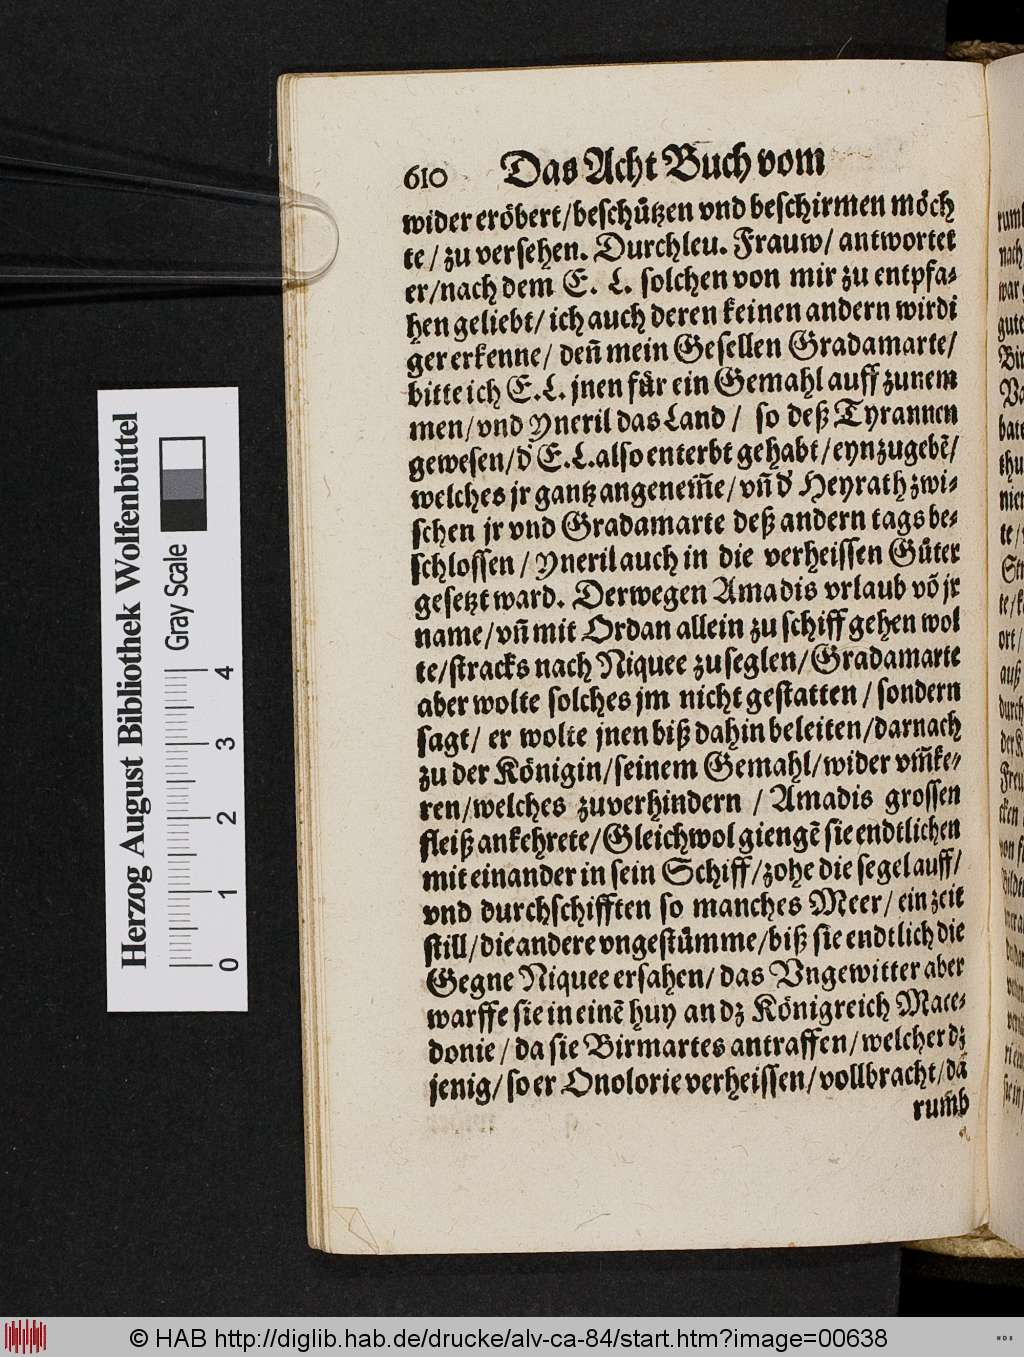 610 Das Acht Buch vom
wider eröbert/beschützen vnd beschirmen möch
te/ zu versehen. Durchleu. Frauw/ antwortet
er/nach dem E. L. solchen von mir zu entpfa-
hen geliebt/ ich auch deren keinen andern wirdi
ger erkenne/ deñ mein Gesellen Gradamarte/
bitte ich E.L. jnen für ein Gemahl auff zunem
men/vnd Yneril das Land / so deß Tyrannen
gewesen/d' E.L.also enterbt gehabt/eynzugebẽ/
welches jr gantz angenem̃e/vñ d' Heyrath zwi-
schen jr vnd Gradamarte deß andern tags be-
schlossen / Yneril auch in die verheissen Güter
gesetzt ward. Derwegen Amadis vrlaub võ jr
name/vñ mit Ordan allein zu schiff gehen wol
te/stracks nach Niquee zu seglen/Gradamarte
aber wolte solches jm nicht gestatten / sondern
sagt/ er wolte jnen biß dahin beleiten/darnach
zu der Königin/seinem Gemahl/wider vm̃ke-
ren/welches zuverhindern / Amadis grossen
fleiß ankehrete/Gleichwol giengẽ sie endtlichen
mit einander in sein Schiff/zohe die segel auff/
vnd durchschifften so manches Meer/ ein zeit
still/die andere vngestümme/biß sie endtlich die
Gegne Niquee ersahen/ das Vngewitter aber
warffe sie in einẽ huy an dz Königreich Mace-
donie / da sie Birmartes antraffen/welcher dz
jenig/so er Onolorie verheissen/vollbracht/da
rumb
Herzog August Bibliothek Wolfenbüttel
Gray Scale
0 1 2 3 4
© HAB http://diglib.hab.de/drucke/alv-ca-84/start.htm?image=00638